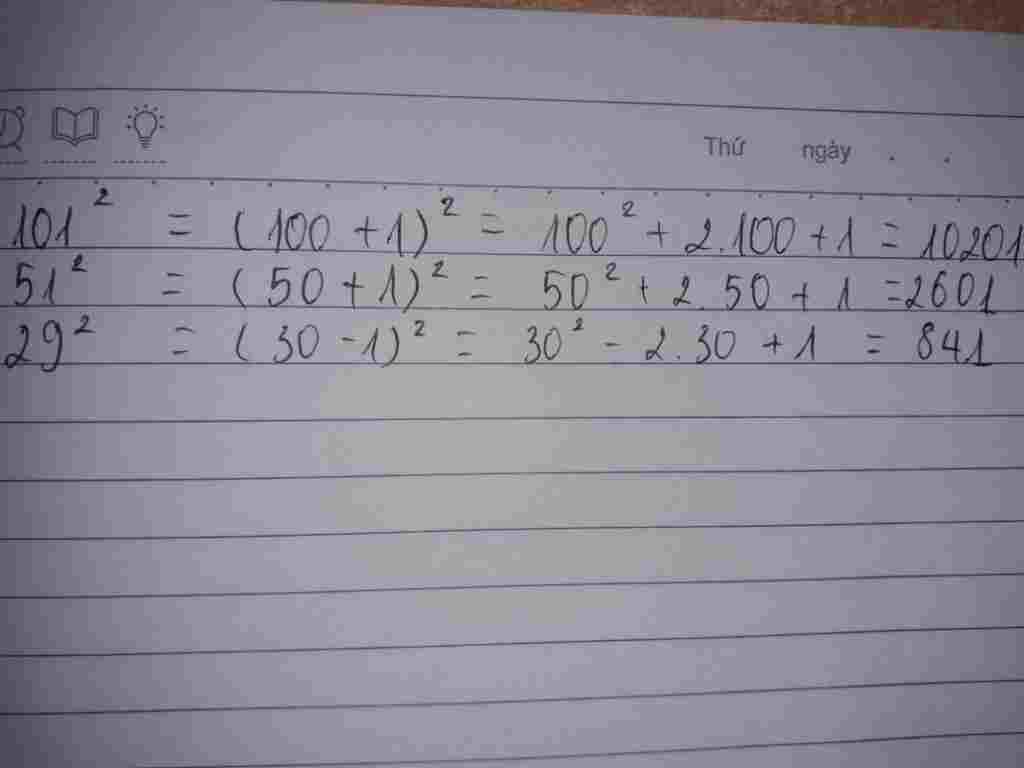 Thứ ngày . .
101² = (100 + 1)² = 100² + 2.100 + 1 = 10201
51² = (50 + 1)² = 50² + 2.50 + 1 = 2601
29² = (30 - 1)² = 30² - 2.30 + 1 = 841